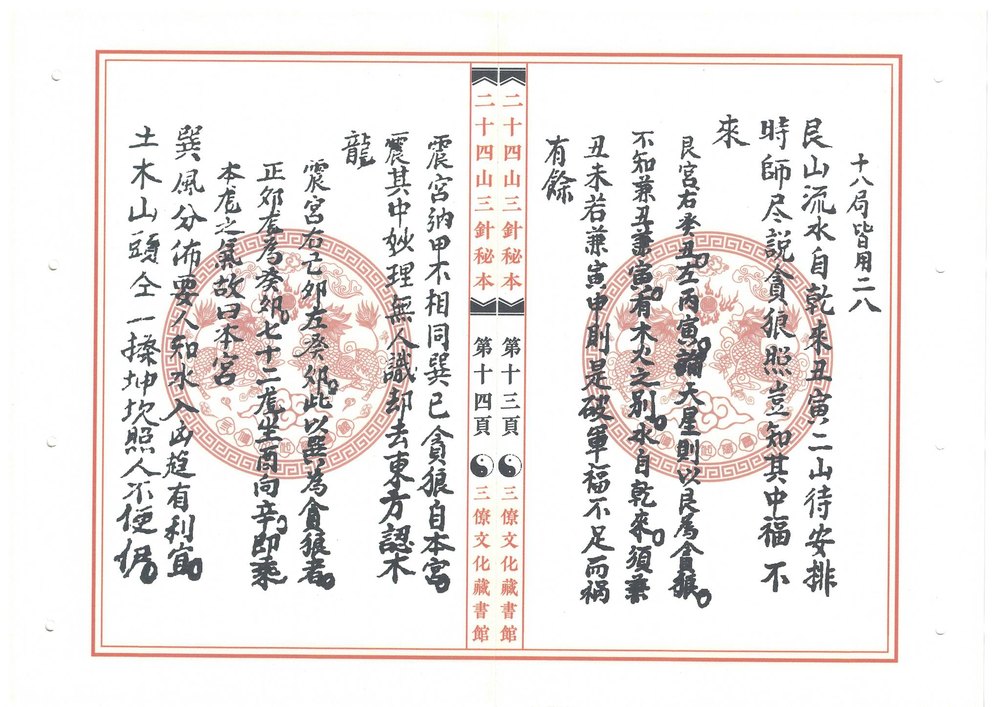 十八局皆用二八
艮山流水自乾来丑寅二山待安排
時師尽説貪狼照豈知其中福不
來
艮宮右癸丑左丙寅論天星則以艮為貪狼
不知兼丑兼寅有木火之别水自乾來須兼
丑未若兼寅申則是破軍福不足而禍
有餘
二十四山三針秘本
第十三頁
三僚文化藏書館
二十四山三針秘本
第十四頁
三僚文化藏書館
震宮納甲不相同巽已貪狼自本宮
震其中妙理無人識却去東方認木
龍
震宮右己卯左癸卯此以巽為貪狼者
正卯龙為癸卯七十二龙坐酉向辛即乘
本龙之氣故曰本宮
巽風分佈要人知水入凶莚有利宜
土木山頭仝一樣坤坎照人不便